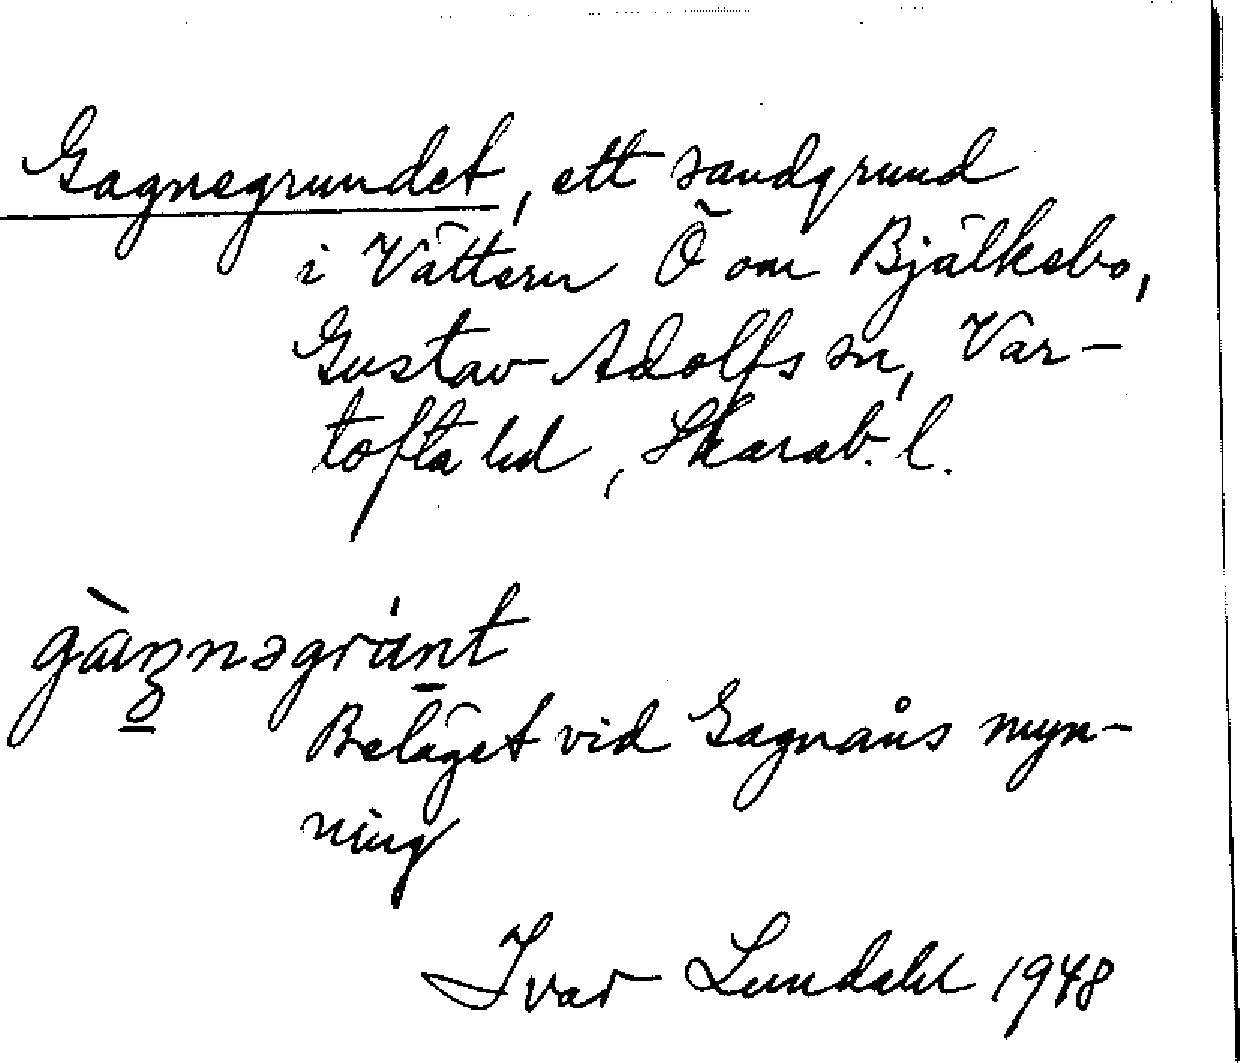 Gagnegrundet, ett sandgrund
i Vättern Ö om Bjälkebo,
Gustav Adolfs sn, Var-
tofta hd, Skarab. l.
Beläget vid Gagnåns myn-
ning
Ivar Lundahl 1948